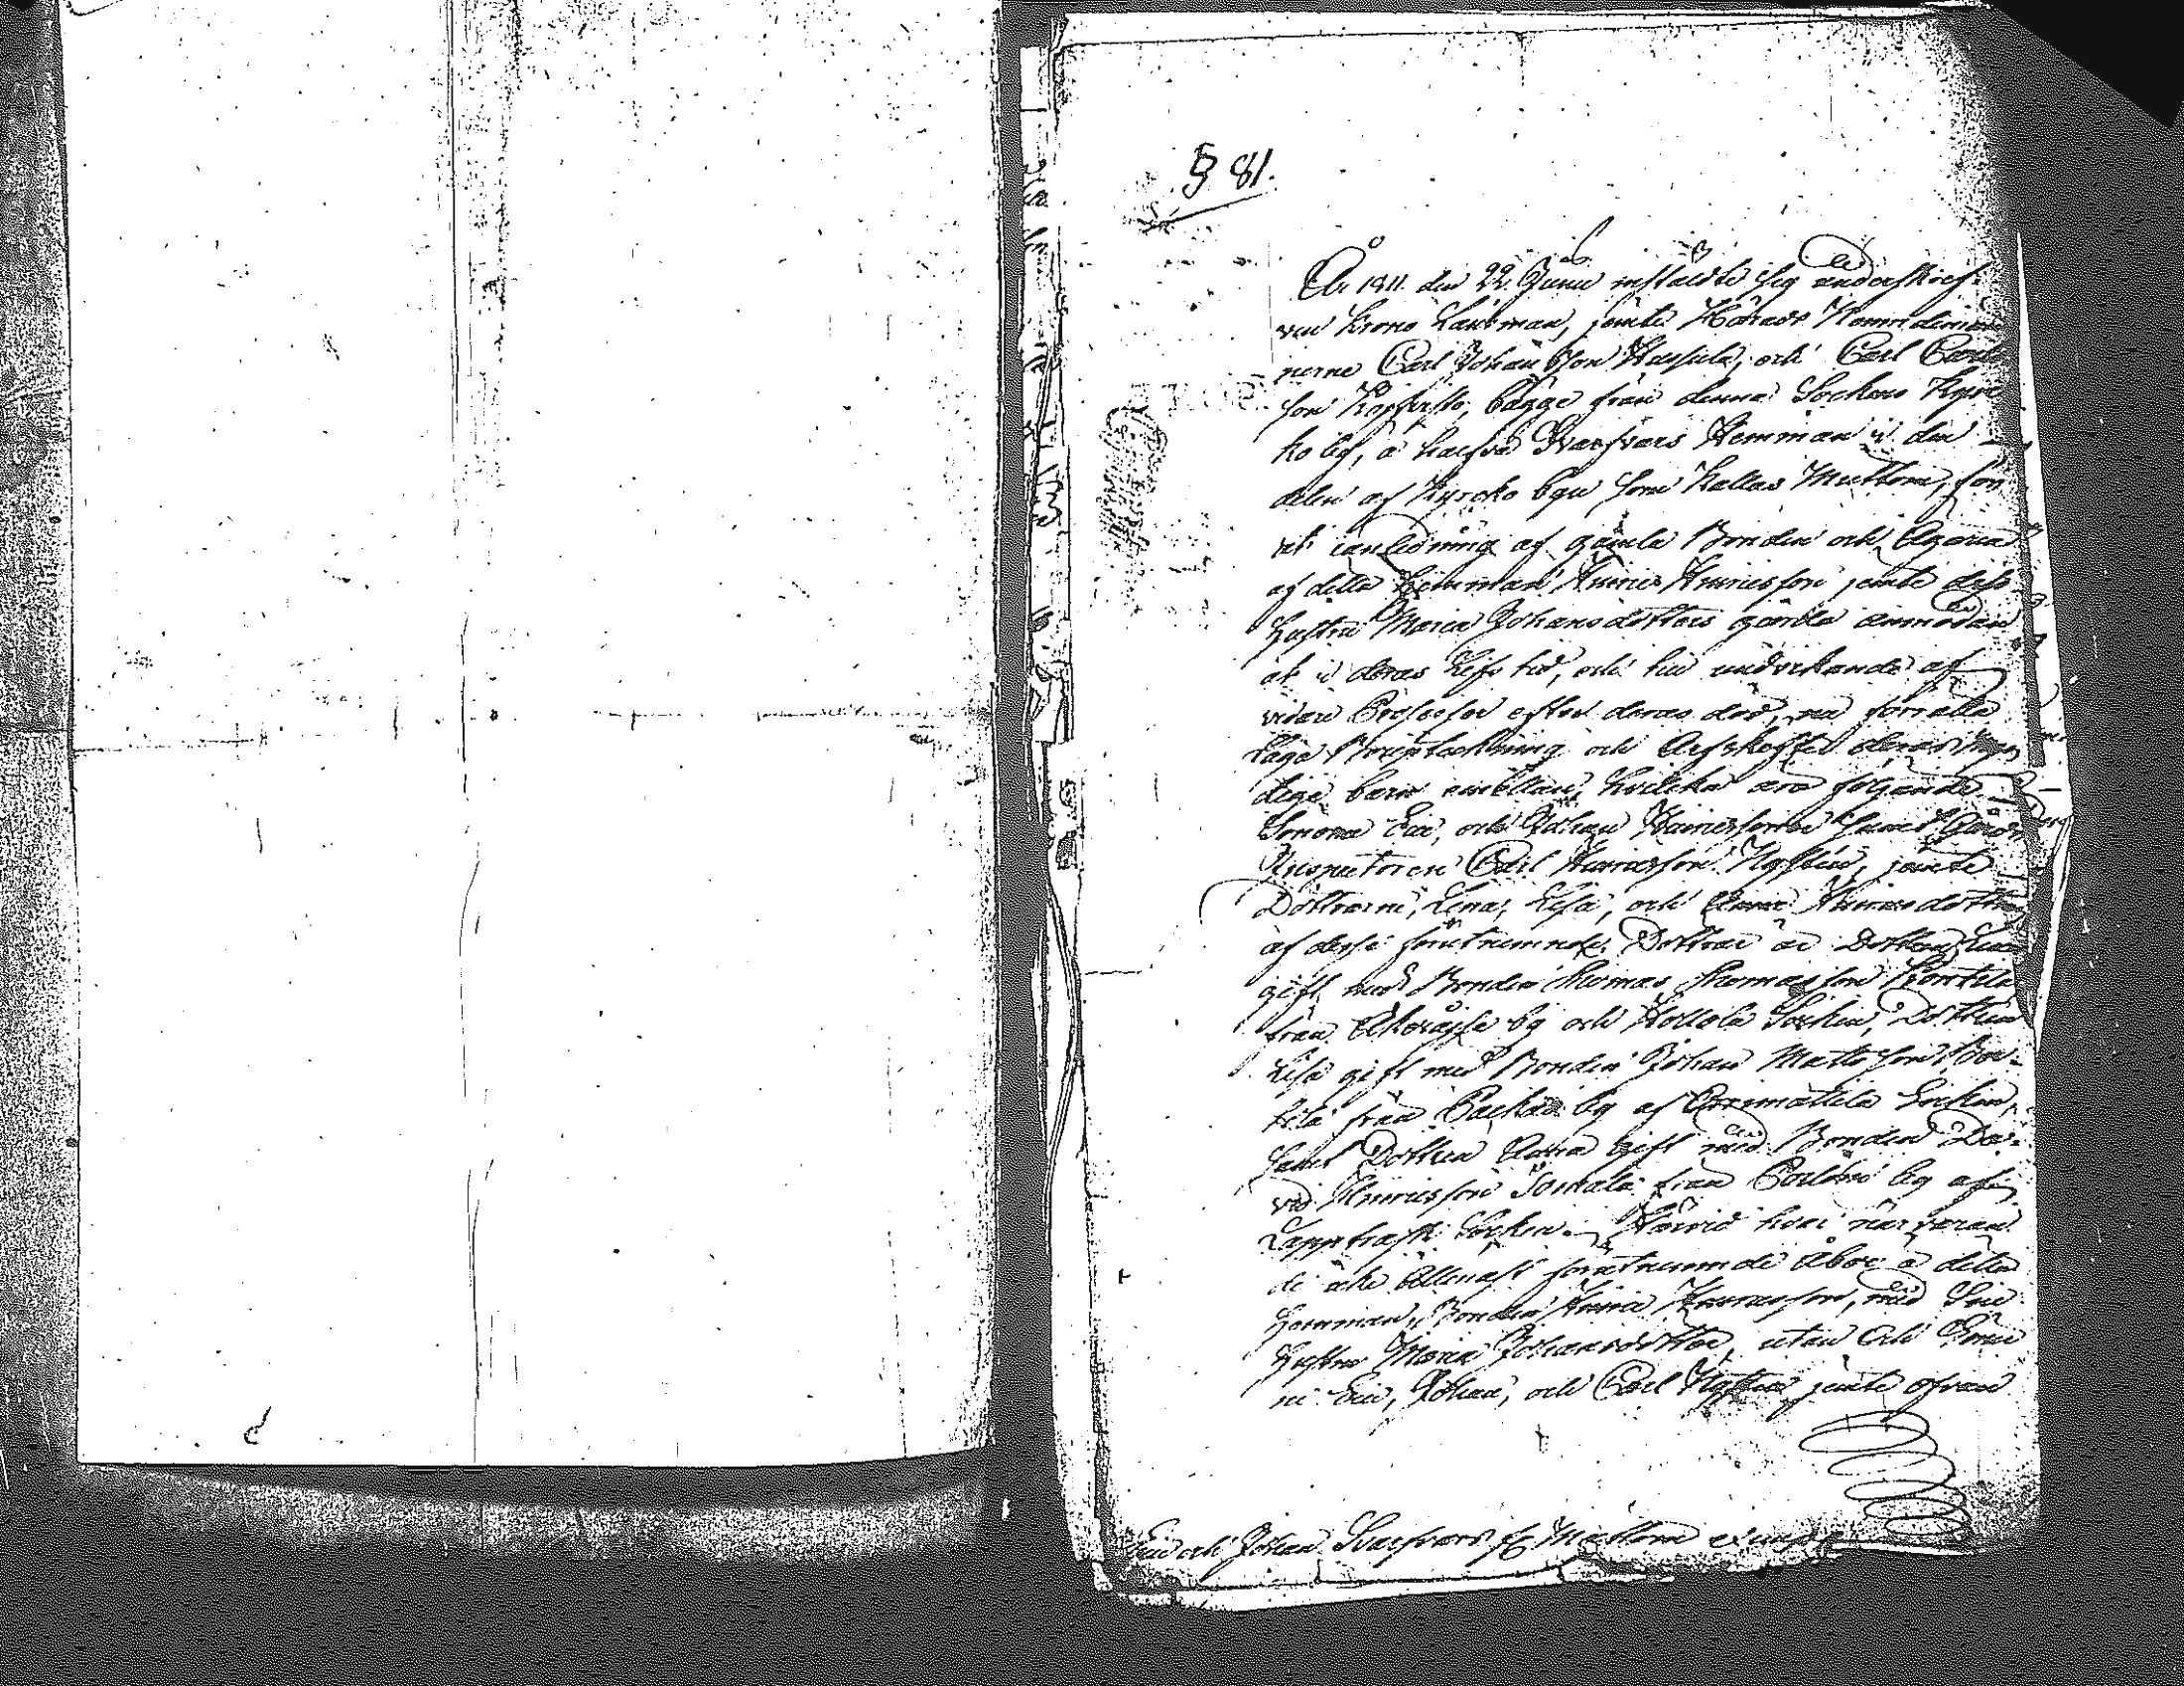 § 81.
År 1811 den 22 Junii instälde sig underskref-
ven Krono Länsman, jemte Härads Nämndemän
nerne Carl Johan Son Hassula, och Carl Carls
son Kopsisto, bägge från denna Sockens Kyrc
ko by, å halfva Svarfvars Hemman i den
delen af Kyrcko byn som kallas Muttom, för
at i anledning af gamle Bonden och Ägaren
af detta Hemman Hinric Hinricsson jemte dess
Hustru Maria Johansdotters gjorda anmodan
at i deras Lifs tid, och till undvikande af
vidare Processer efter deras död, nu förrätta
Laga Bouptekning och Arfskifte deras
dige barn emellan, hvilcka äro följande
Sönerne Eric, och Johan Hinricssöner samt Gårds
Inspectoren Carl Hinricsson Nystén, jemte
Döttrarne, Lena, Lisa, och Anna Hinrics döttrar
af desse förutnemnde Döttrar är Dottren Lena
gift med Bonden Thomas Thomasson Konttila
från Okeroista by och Hollola Sochen, Dottren
Lisa gift med Bonden Johan Matts son
tila från Packas by af Orimattila Sochen,
samt Dottren Anna gift med Bonden Da-
vid Hinricsson Somala från Porlom by af
Lappträsk Sochen. Härvid voro närvaran
de icke Allenast förutnemnde Åbor å detta
Hemman, Bonden Hinric Hinricsson, med Sin
Hustru Maria Johansdotter, utan och Söner
ne Eric, Johan, och Carl Nystén jemte ofvan
Eric och Johan Svarfvars fr Muttom